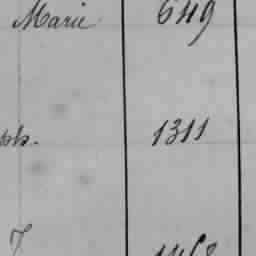 Marie 649
ph. 1311